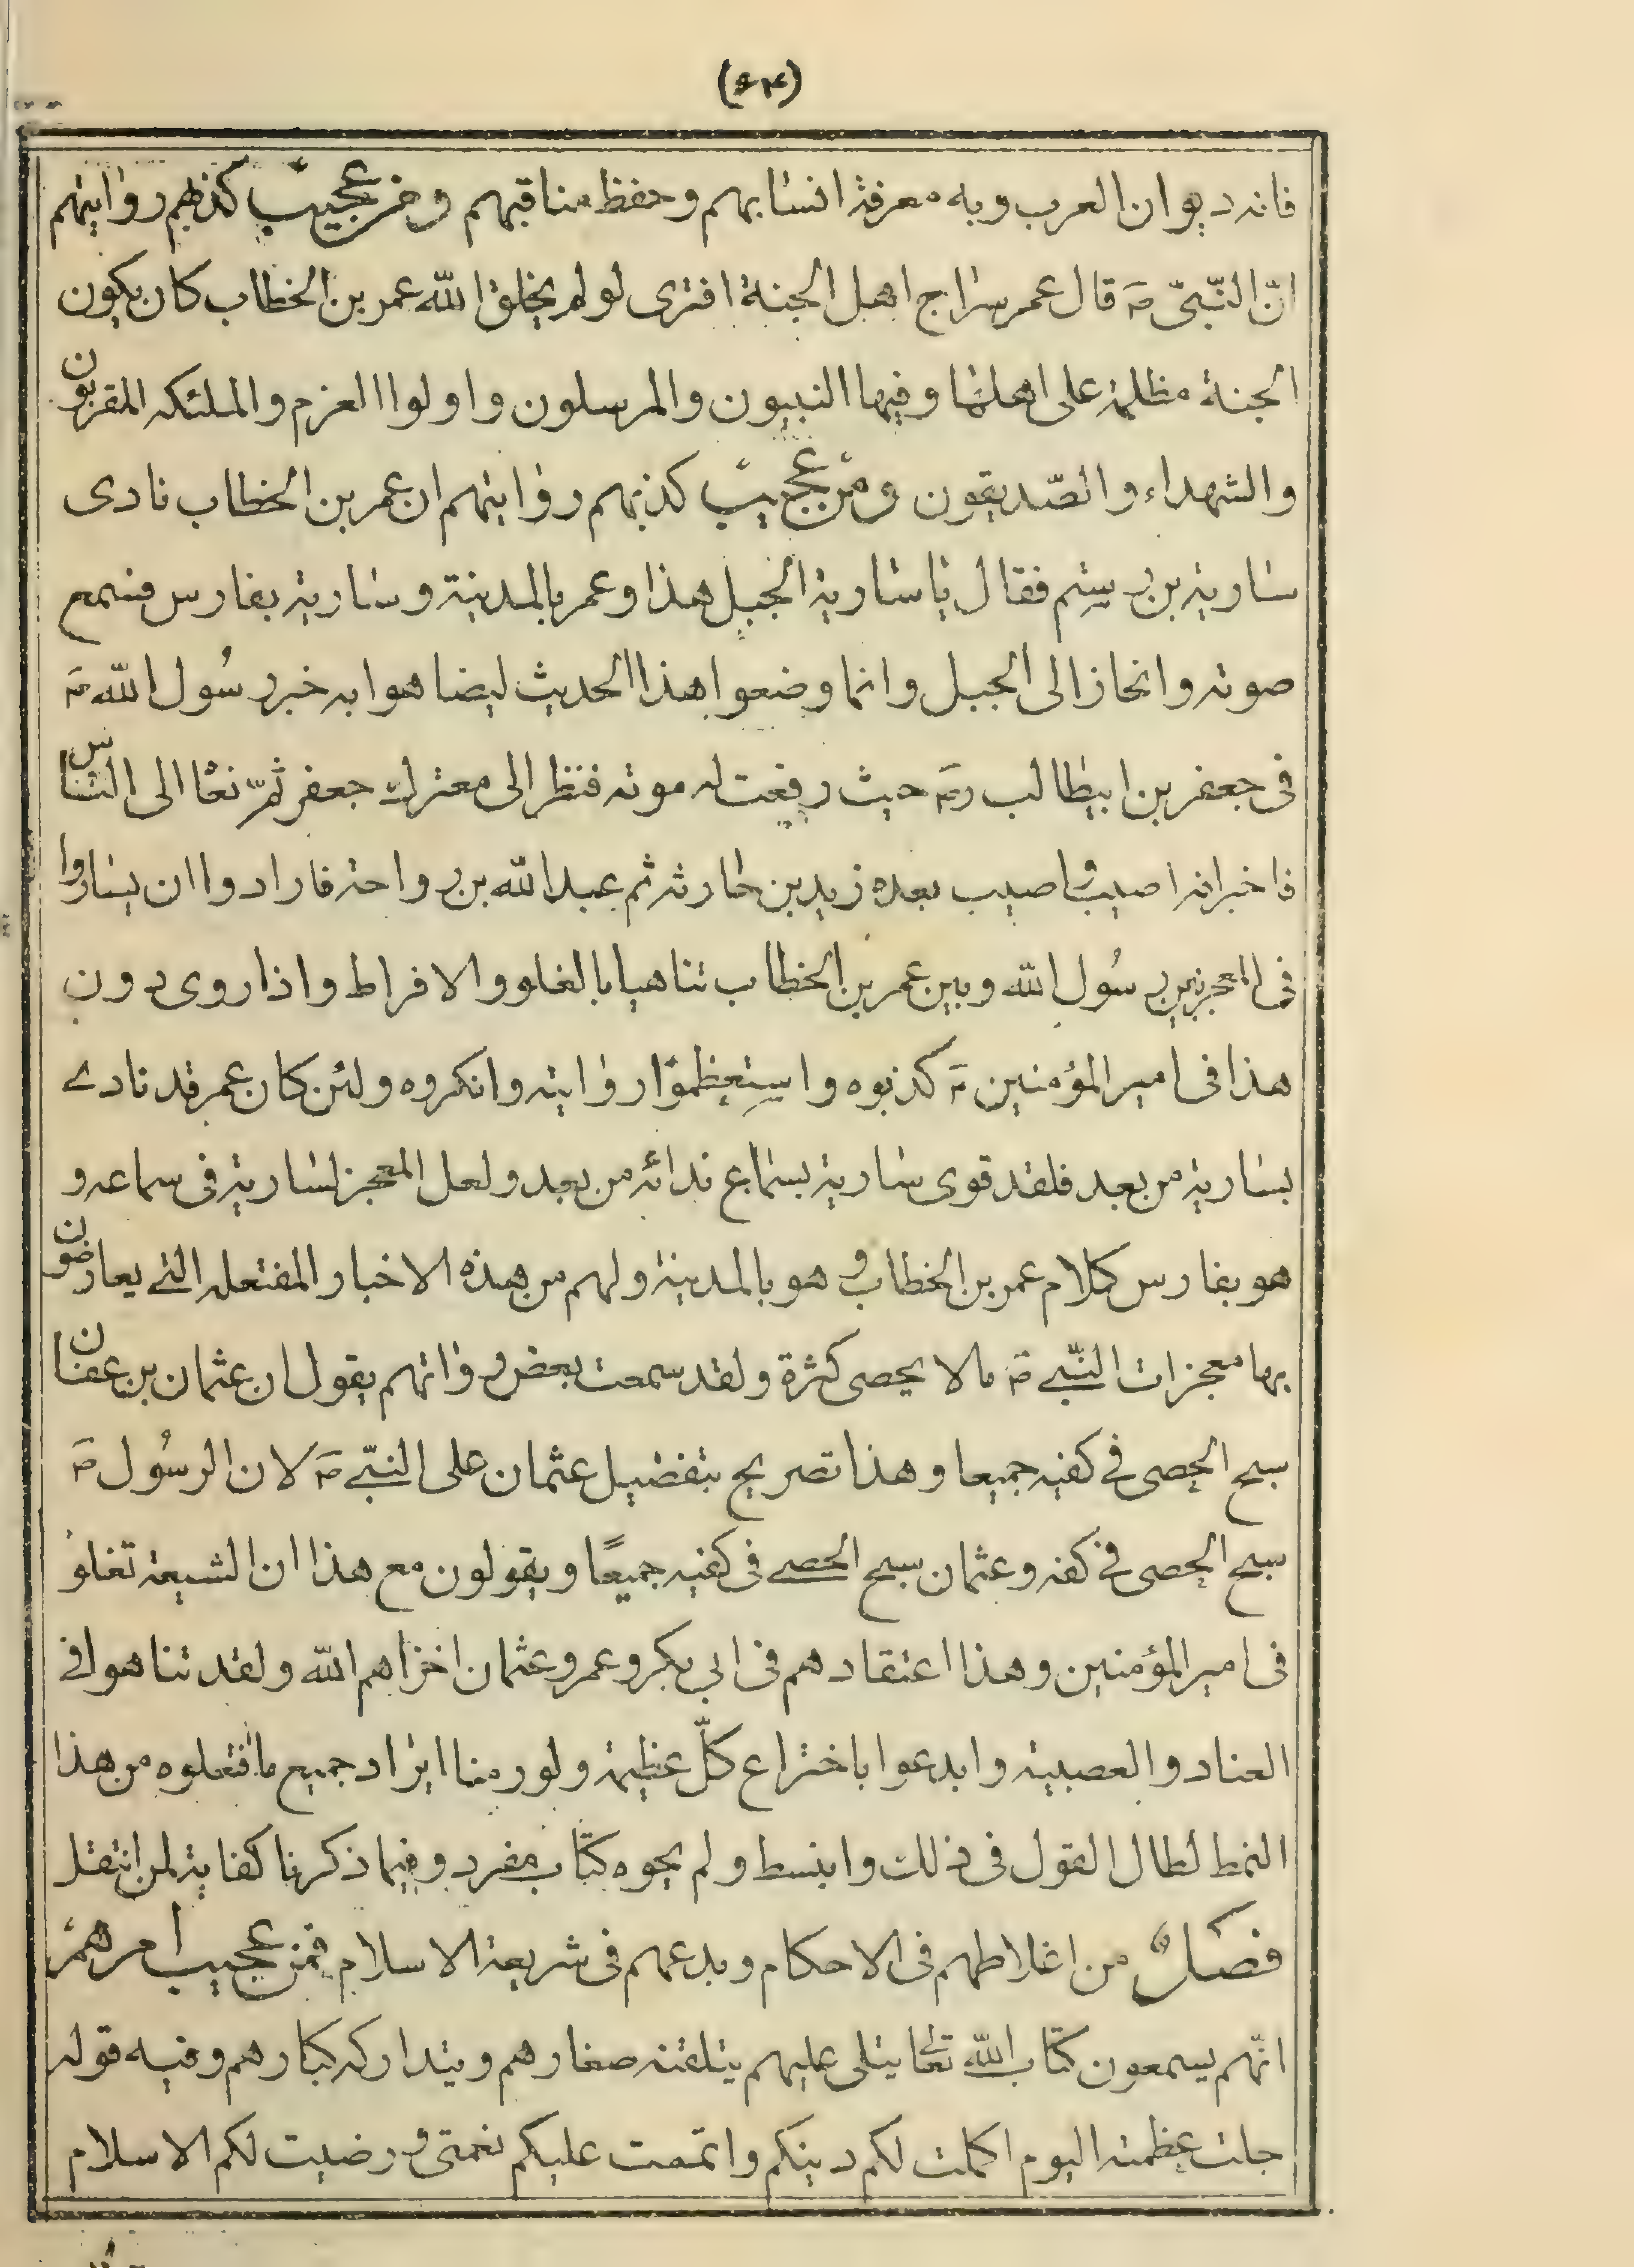 (٤٦)
فانه ديوان العرب وبه معرفة انسابهم وحفظ مناقبهم ومن عجيب كذبهم روايتهم
انّ النّبىّ ص قال عمر سراج اهل الجنة افترى لو لم يخلق الله عمر بن الخطاب كان يكون
الجنة مظلمة على اهلها وفيها النبيون والمرسلون واولوا العزم والملئكه المقربون
والشهداء والصّديقون ومن عجيب كذبهم روايتهم ان عمر بن الخطاب نادى
سارية بن رستم فقال يا سارية الجبل هذا وعمر بالمدينة وسارية بفارس فسمع
صوته وانحاز الى الجبل وانما وضعوا هذا الحديث ليضاهوا به خبر رسُول الله ص
فى جعفر بن ابيطالب ره حيث رفعت له موته فنظر الى معترك جعفر ثمّ نعا الى الناس
فاخبر انه اصيب واصيب بعده زيد بن حارثه ثم عبد الله بن رواحة فارادوا ان يساووا
فى المعجز بين رسُول الله وبين عمر بن الخطاب تناهيا بالغلو والافراط واذا روى دون
هذا فى امير المؤمنين ع كذبوه واستعظموا روايته وانكروه ولئن كان عمر قد نادے
بسارية من بعد فلقد قوى سارية بسماع ندائه من بعد ولعل المعجز لسارية فى سماعه و
هو بفارس كلام عمر بن الخطاب وهو بالمدينة ولهم من هذه الاخبار المفتعله التے يعارضون
بها معجزات النّبے ص مالا يحصى كثرة ولقد سمعت بعض رواتهم يقول ان عثمان بن عفان
سبح الحصى فے كفيه جميعا وهذا تصريح بتفضيل عثمان على النبّے ص لان الرسُول ص
سبح الحصى فے كفه وعثمان سبح الحصے فى كفيه جميعًا ويقولون مع هذا ان الشيعة تغلو
فى امير المؤمنين وهذا اعتقادهم فى ابى بكر وعمر وعثمان اخزاهم الله ولقد تناهوا فے
العناد والعصبية وابدعوا باختراع كلّ عظيمة ولو رمنا ايراد جميع ما افتعلوه من هذا
النمط لطال القول فى ذلك وانبسط ولم يحوه كتاب مفرد وفيما ذكرنا كفاية لمن انتقل
فصل من اغلاطهم فى الاحكام وبدعهم فى شريعة الاسلام فمن عجيب امرهم
انّهم يسمعون كتاب الله تعالى يتلى عليهم يتلقنه صغارهم ويتداركه كبارهم وفيه قوله
جلت عظمته اليوم اكملت لكم دينكم واتممت عليكم نعمتى ورضيت لكم الاسلام